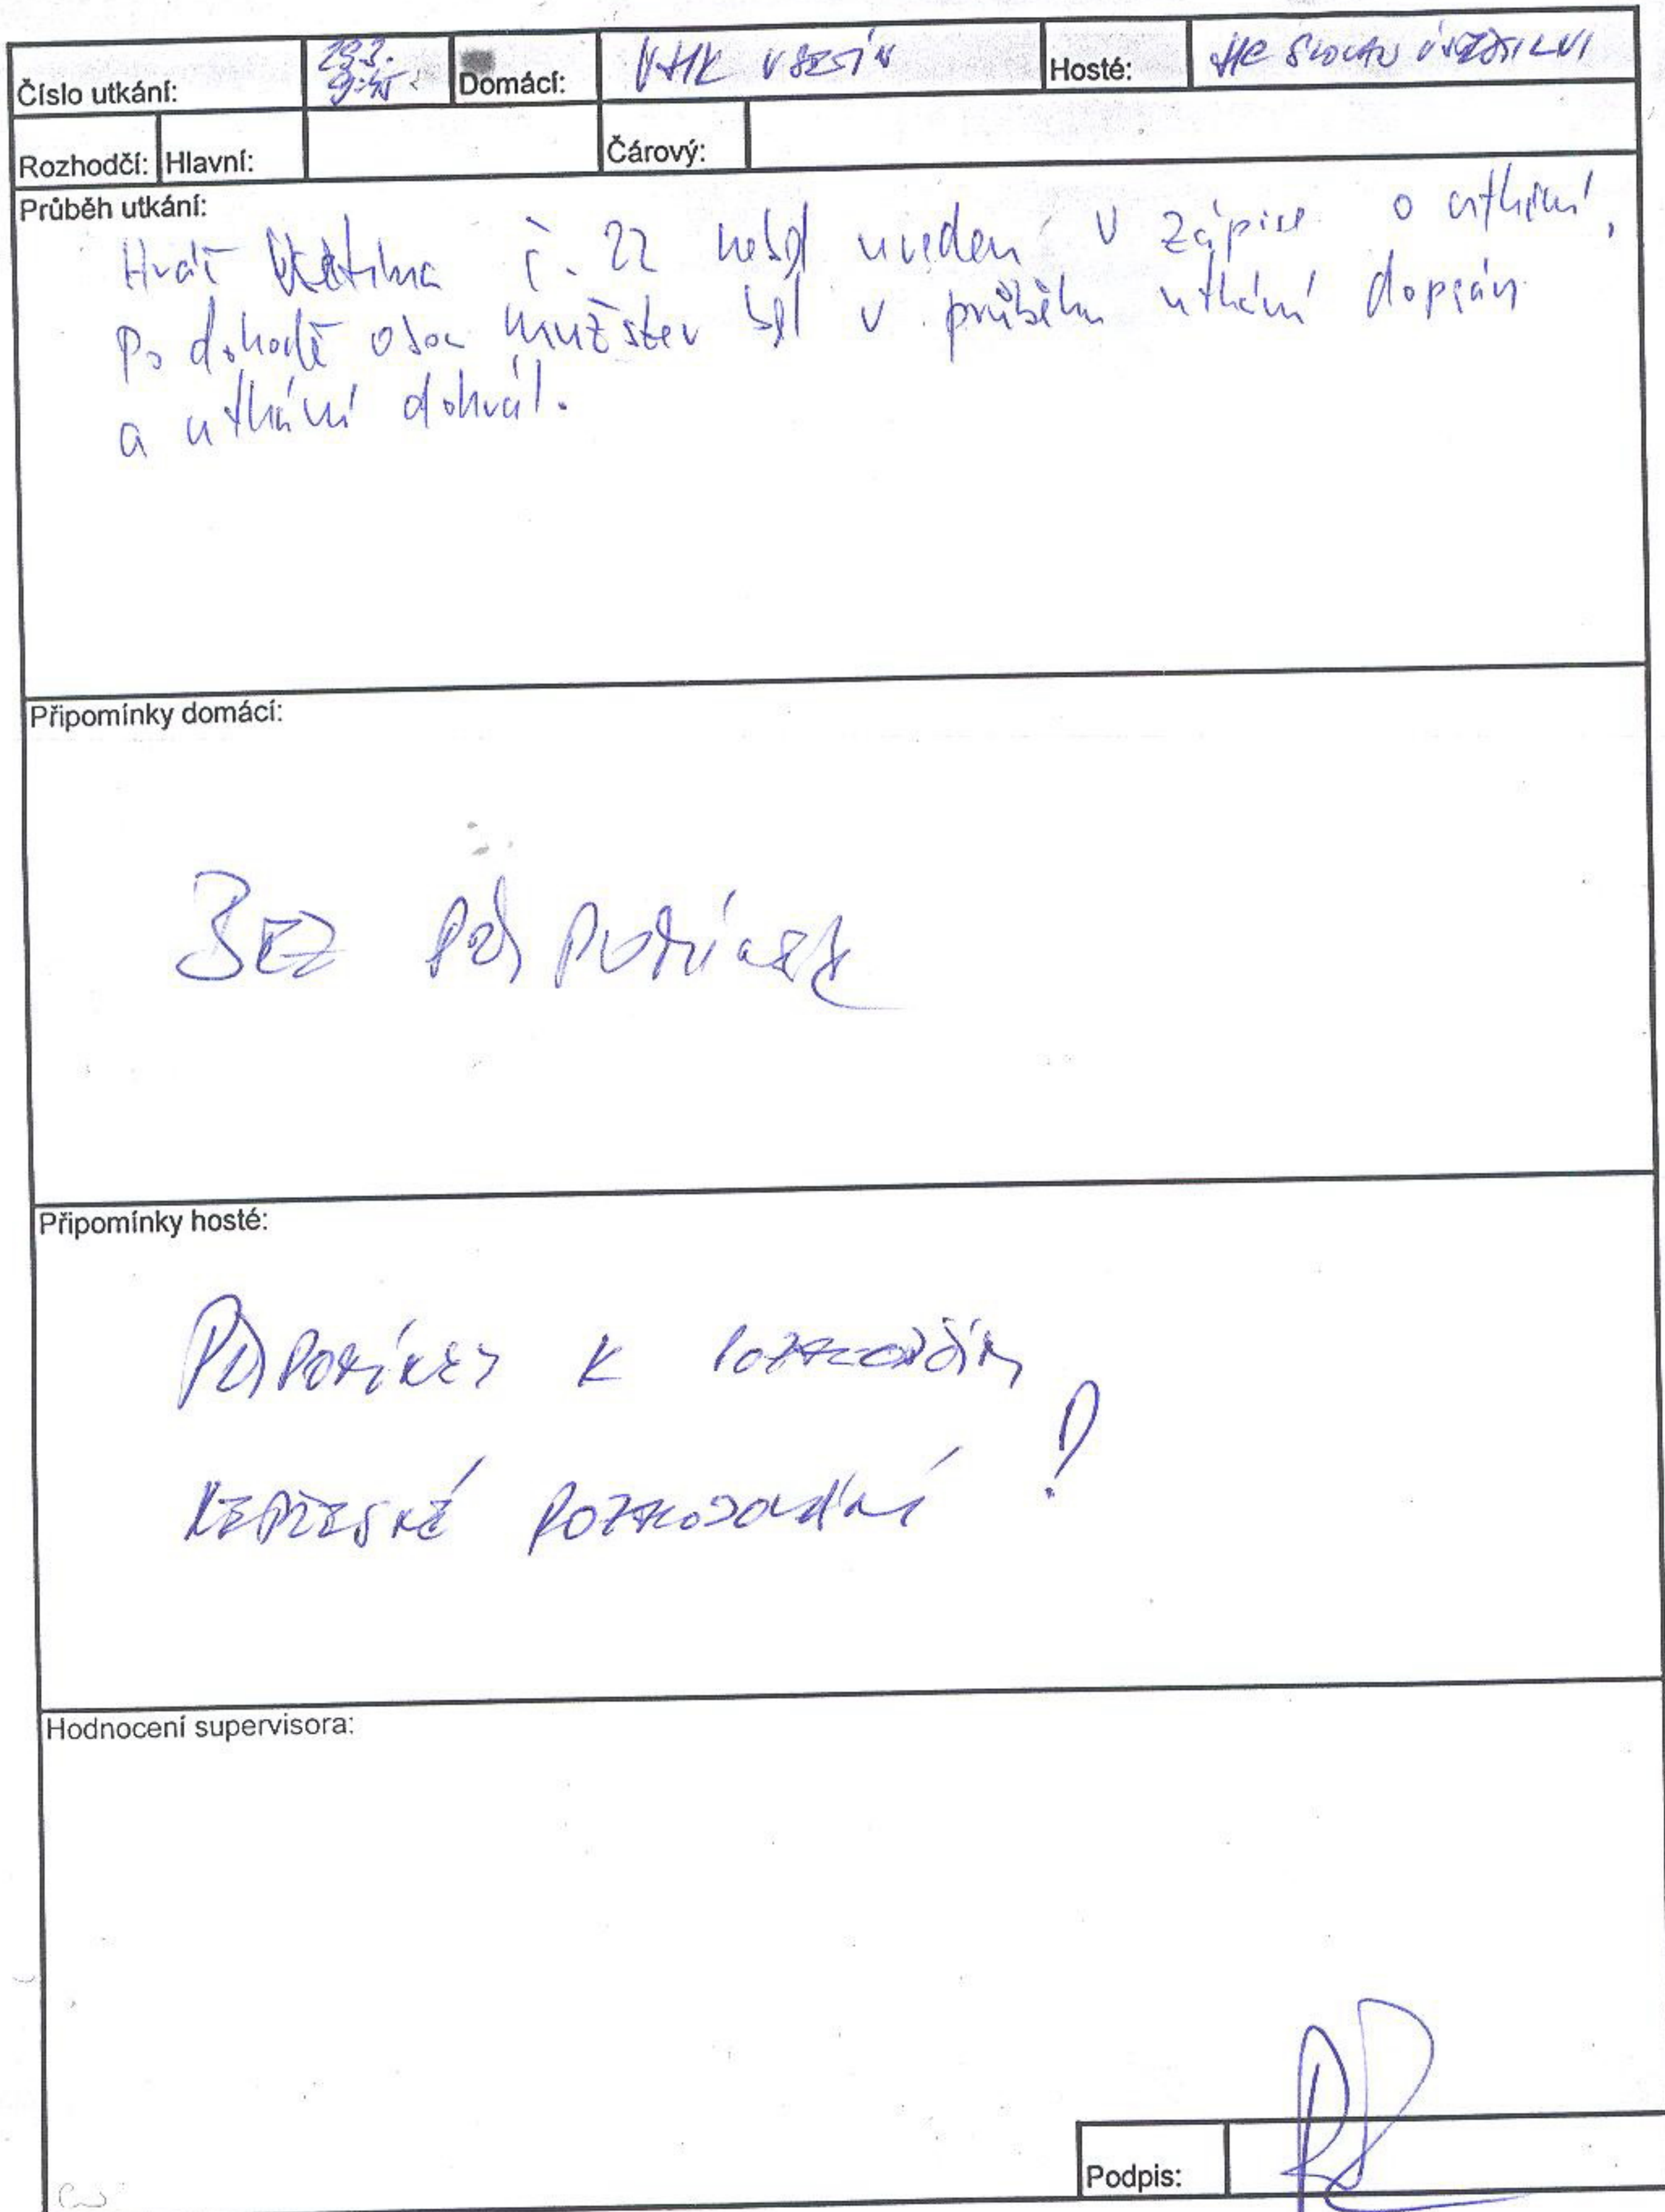 Číslo utkání: 29.3. Domácí: VHK VSETÍN Hosté: HC SLOVAN ÚSTEČTÍ LVI
9:45
Rozhodčí: Hlavní: Čárový:
Průběh utkání:
Hráč č. 22 nebyl uveden v zápise o utkání,
Po dohodě obou mužstev byl v průběhu utkání dopsán
a utkání dohrál.
Připomínky domácí:
BEZ PŘIPOMÍNEK
Připomínky hosté:
PŘIPOMÍNKY K ROZHODČÍM
NEPŘESNÉ ROZHODOVÁNÍ !
Hodnocení supervisora:
Podpis: